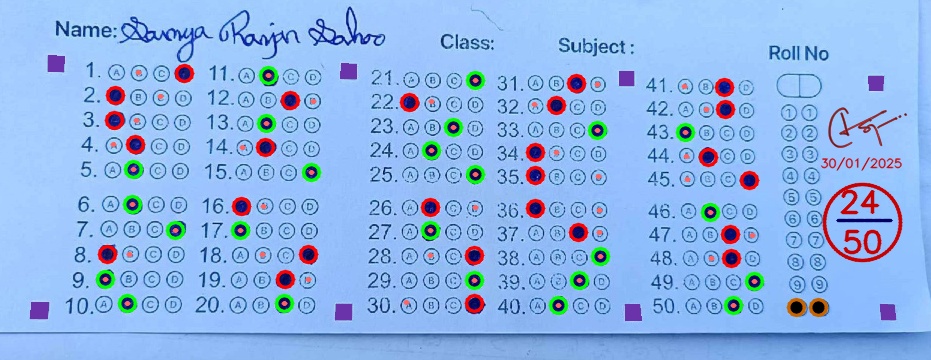 Name: Samya Ranjan Sahoo
Class:
Subject:
Roll No
1. A B C
2. B C D
3. B C D
4. A C D
5. A C D
6. A C D
7. A B C
8. B C D
9. B C D
10. A C D
11. A C D
12. A B D
13. A C D
14. A C D
15. A B C
16. B C D
17. B C D
18. A B C
19. A B D
20. A B D
21. A B C
22. B C D
23. A B D
24. A C D
25. A B C
26. A C D
27. A C D
28. A B C
29. A B C
30. A B C
31. A B D
32. A C D
33. A B C
34. B C D
35. B C D
36. B C D
37. A B D
38. A B C
39. A B D
40. A C D
41. A B D
42. A B D
43. B C D
44. A C D
45. A B C
46. A C D
47. A B D
48. A B D
49. A B C
50. A B D
1 1
2 2
3 3
4 4
5 5
6 6
7 7
8 8
9 9
30/01/2025
24
50